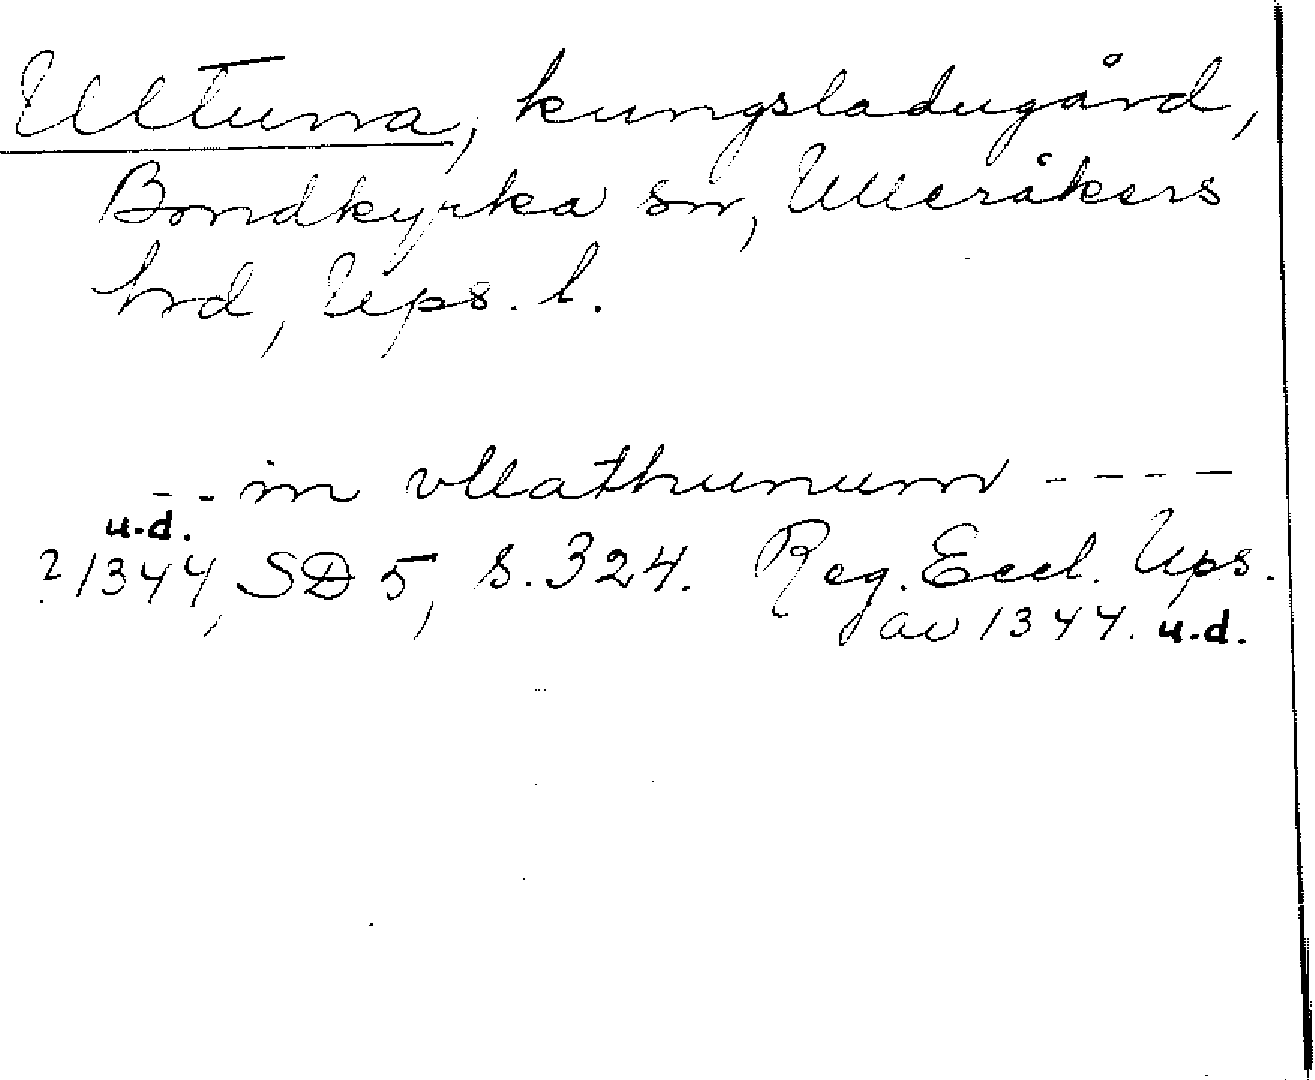 Ultuna, kungsladugård,
Bondkyrka sn, Ulleråkers
hrd, Ups. l.
-- in vllathunum ----
u.d.
? 1344, SD 5, s. 324. Reg. Eccl. Ups.
av 1344. u.d.